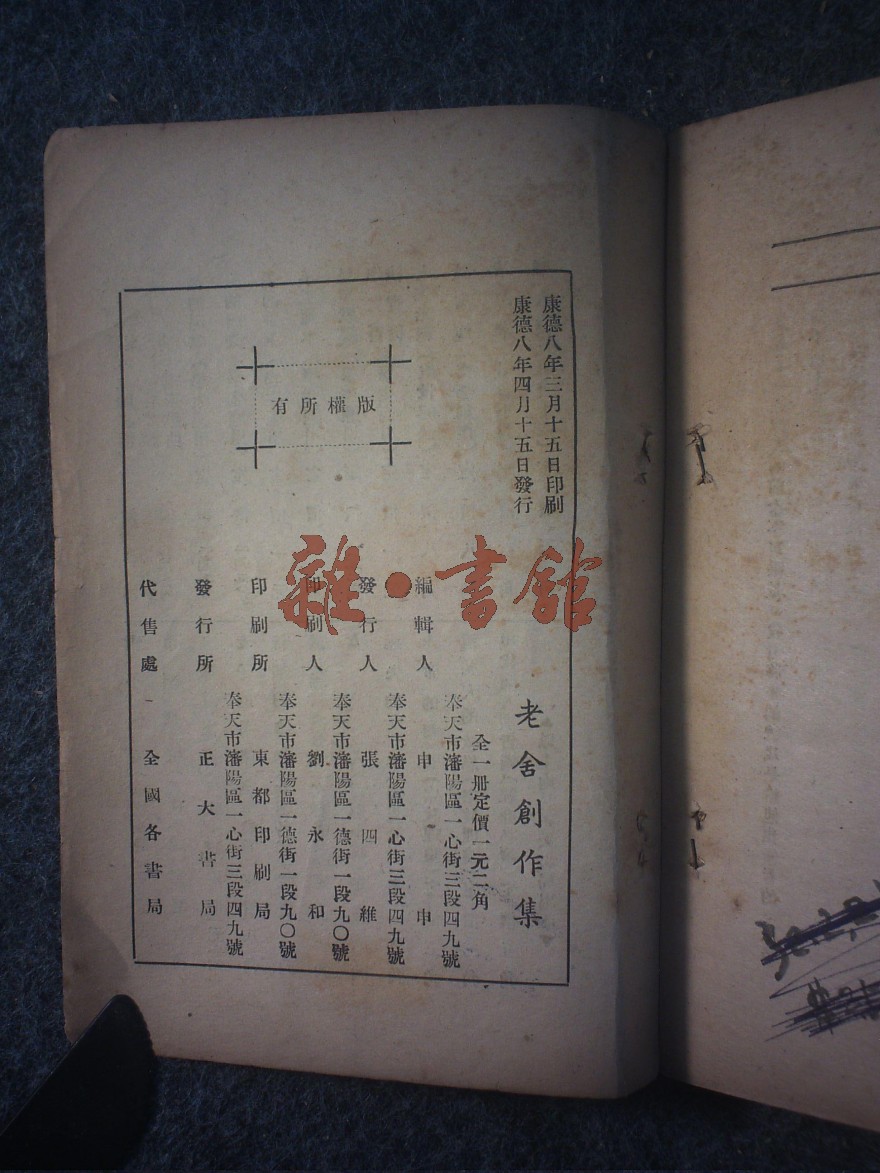 康德八年三月十五日印刷
康德八年四月十五日發行
老舍創作集
全一冊定價一元二角
奉天市瀋陽區一心街三段四九號
編輯人 申申
奉天市瀋陽區一心街三段四九號
發行人 張四維
奉天市瀋陽區一德街一段九〇號
印刷人 劉永和
奉天市瀋陽區一德街一段九〇號
印刷所 東都印刷局
奉天市瀋陽區一心街三段四九號
發行所 正大書局
代售處 全國各書局
有所權版
雜·書館